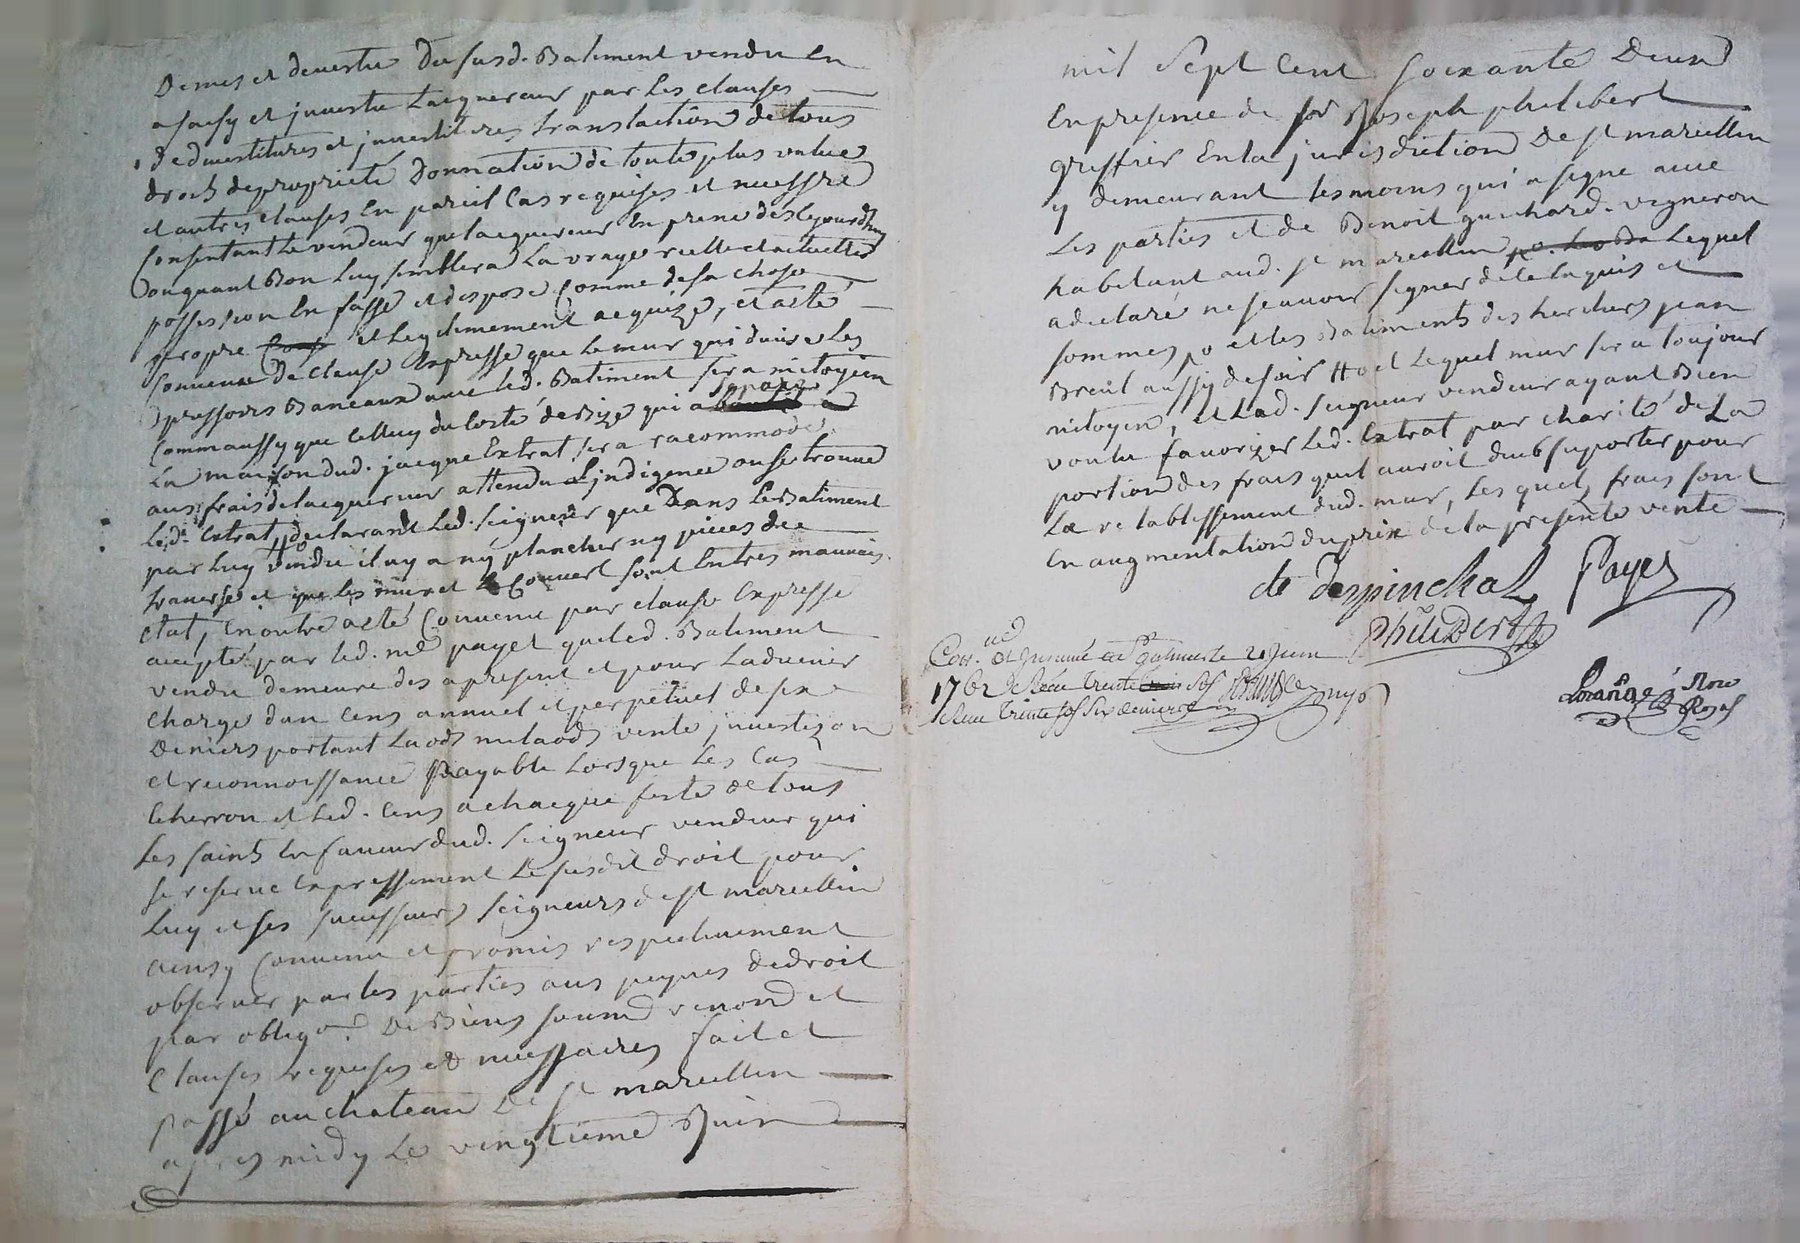 Demis et devestu Du susd. Batiment vendu en
a saisy et jnvestu Lacquereur par les clauses
de devestitures et jnvestitures translation de tous
droits de propriete Donnation de toute plus value
et autres clauses en pareil cas requises et necessre
Consentant le vendeur que lacquereur en prene des le jourdhuy
ou quant Bon luy semblera La vraye reelle et actuelle
possession en fasse et dispose comme de sa chose
propre et legitimement acquize, et a été
convenu De clause expresse que le mur qui divise les
pressoirs Banneaux avec led. Batiment sera mitoyen
comm aussy que celluy du costé de Bize qui a separé
La maison dud. jacque Extrat sera racommodé
aux frais de lacquereur attendu L'indigence ou se trouve
led. Extrat, declarant led. seigneur que Dans le Batiment
par luy vendu il ny a ny plancher ny pieces de
traverse et que les murs et le Couvert sont en tres mauvais
etat, en outre a été Convenu par clause expresse
accepté par led. me payet que led. Batiment
vendu demeure des a present et pour Ladvenir
chargé d'un cens annuel et perpetuel de six
Deniers portant Laods milaods vente jnvestizon
et reconnoissance payable Lorsque les cas
echerron et led. cens a chacque feste de tous
Les saints en faveur dud. seigneur vendeur qui
se reserve expressement le susdit droit pour
Luy et ses successeurs seigneurs de st marcellin
ainsy convenu et promis respectivement
observer par les parties aux peynes de droit
par obligon. De Biens soumd renond et
Clauses requises et necessaires fait et
passé au chateau De st marcellin
apres midy Le vingtieme Juin
mil sept cent soixante Deux
En presence de sr Joseph philibert
greffier En la jurisdiction De st marcellin
y demeurant tesmoins qui a signé avec
Les parties et de Benoit guichard vigneron
habitant aud. st marcellin Lequel
a declaré ne scavoir signer de ce Enquis et
sommés, et les Batiments des hertiers jean
Breül aussy de soir Lequel mur sera toujour
mitoyen, et Led. seigneur vendeur ayant Bien
voulu favorizer led. Extrat par charité de La
portion des frais quil auroit deub suporter pour
La retablissement dud. mur, Les quels frais sont
En augmentation du prix de la presente vente
de Despinchal Payet
Philibert
Con. et jnsinué a st galmier le 21 juin
1762 Receu trente sols
Receu trente sols six deniers
Lorange Nore
Royal